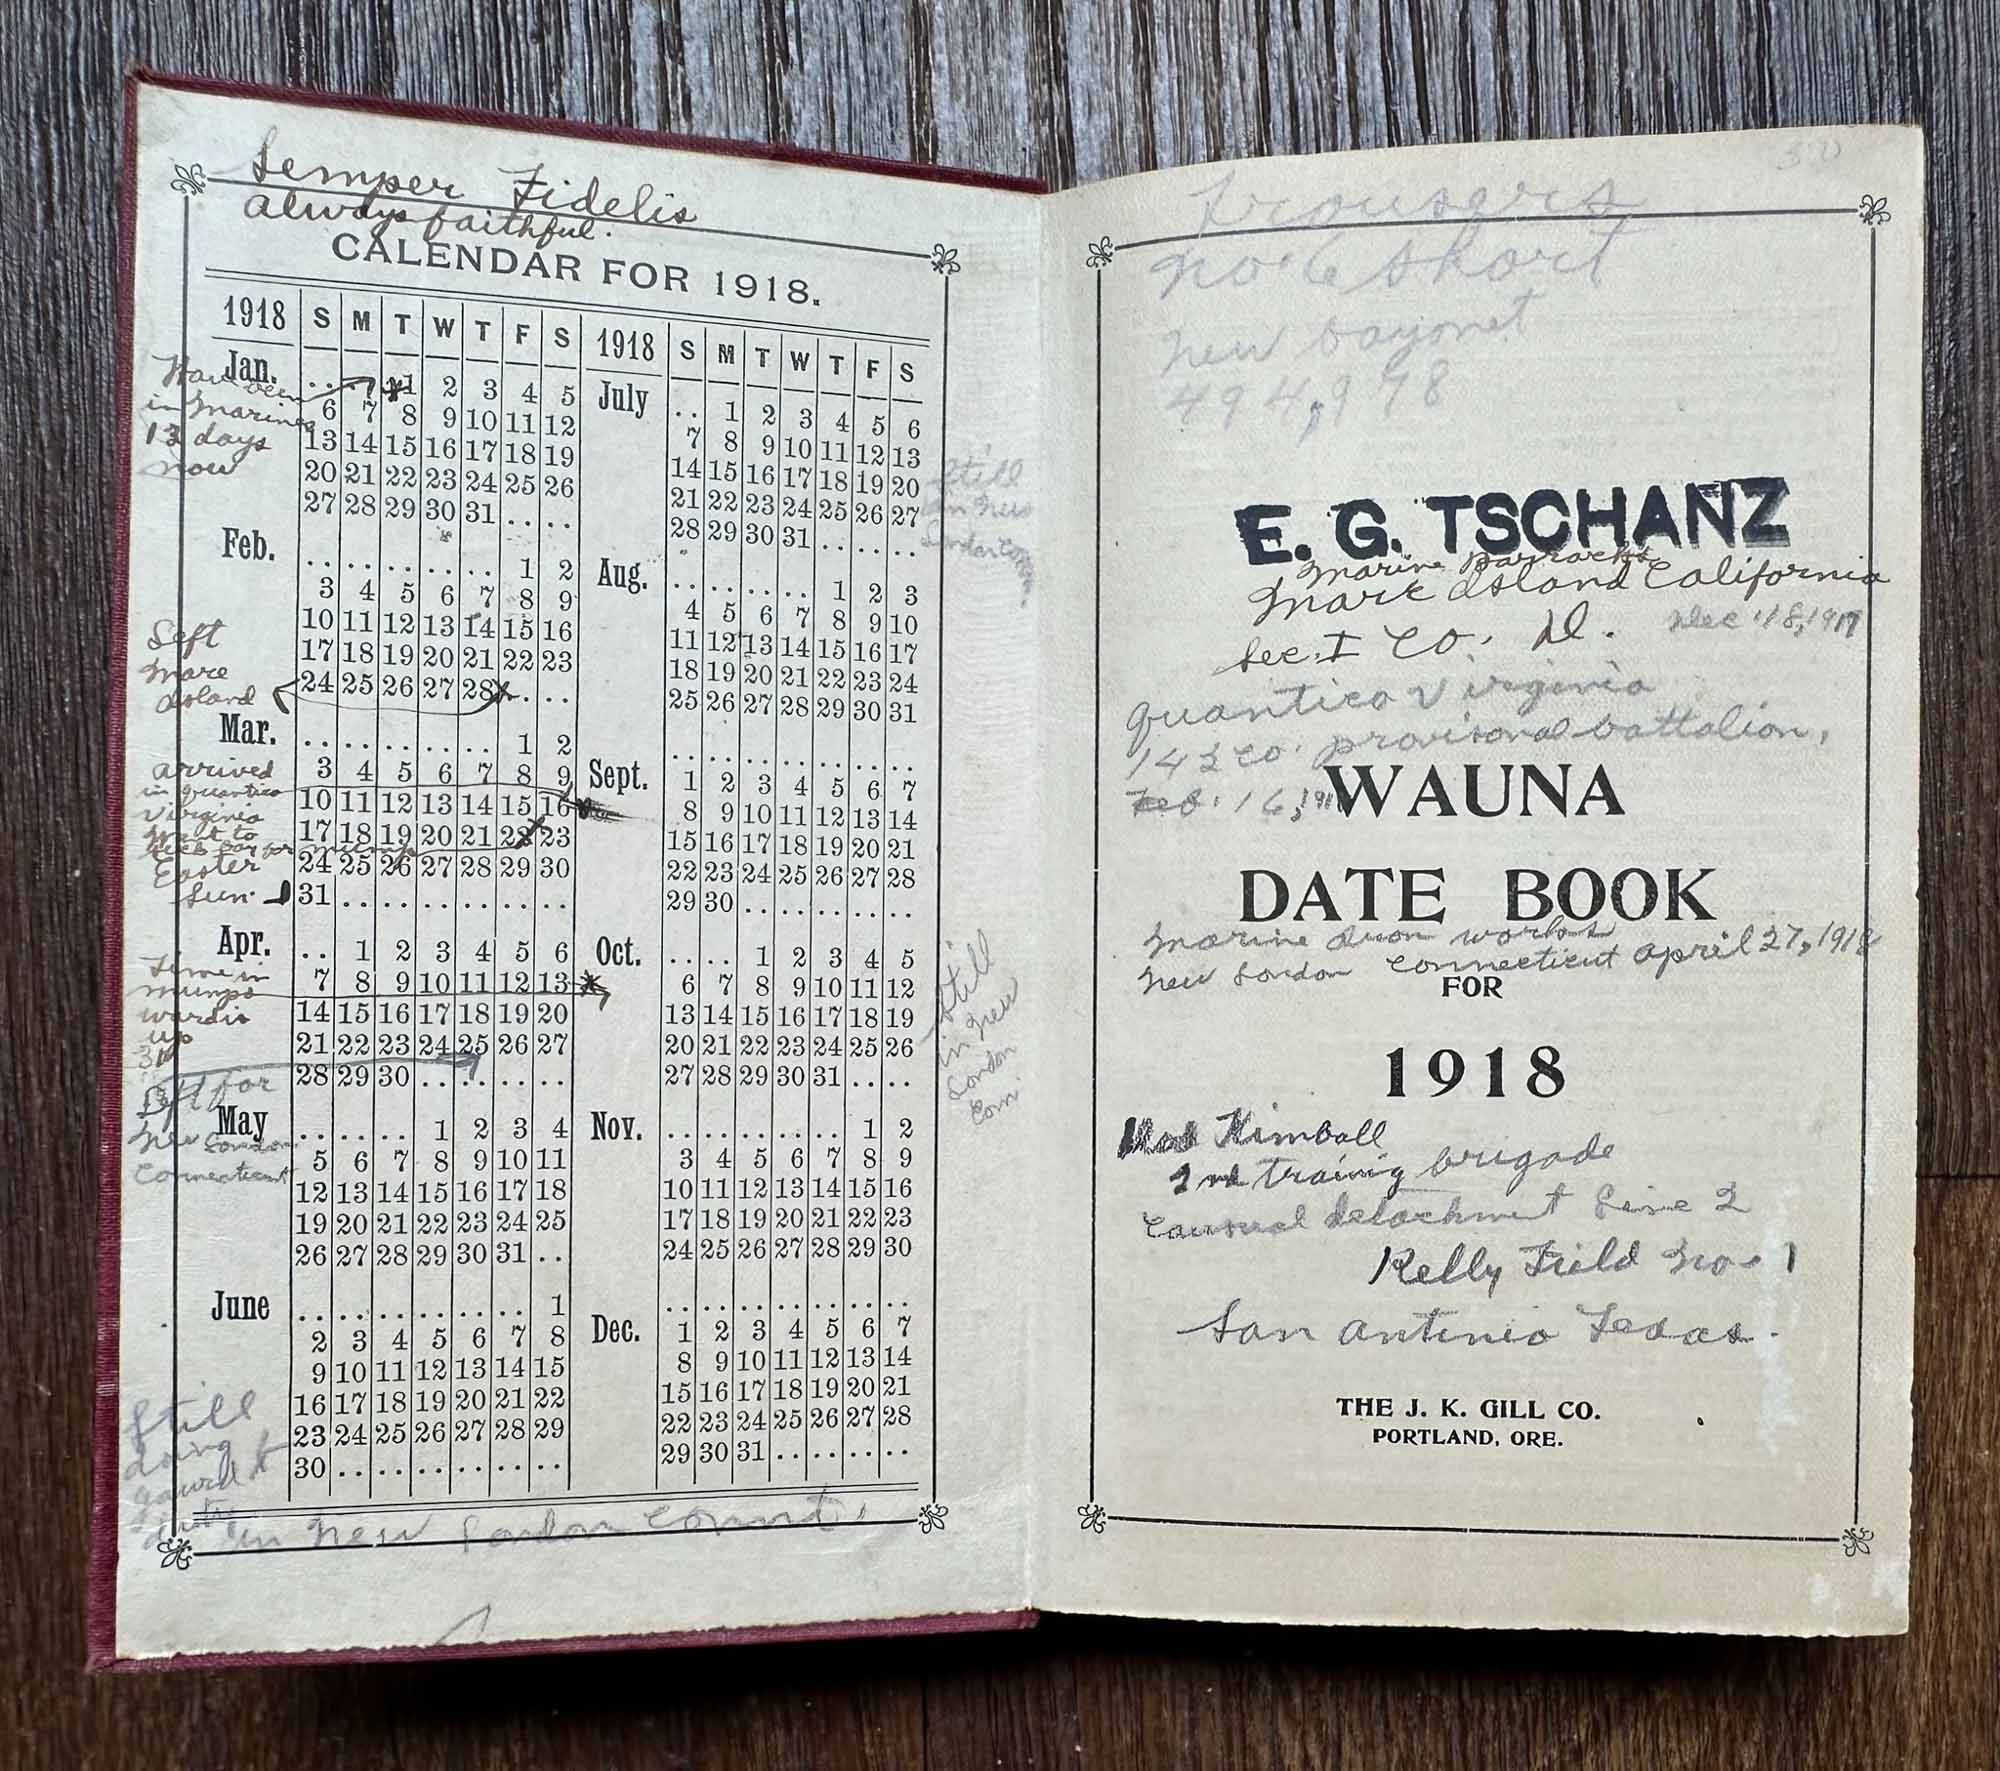 Semper Fidelis
always faithful.
CALENDAR FOR 1918.
1918 S M T W T F S
Jan.
Have been
in Marines
13 days
now
. . . . 1 2 3 4 5
6 7 8 9 10 11 12
13 14 15 16 17 18 19
20 21 22 23 24 25 26
27 28 29 30 31 . . . .
Feb.
. . . . . . . . . . 1 2
3 4 5 6 7 8 9
10 11 12 13 14 15 16
17 18 19 20 21 22 23
24 25 26 27 28 . . . .
Left
Mare
Island
Mar.
. . . . . . . . . . 1 2
3 4 5 6 7 8 9
10 11 12 13 14 15 16
17 18 19 20 21 22 23
24 25 26 27 28 29 30
31 . . . . . . . . . . . .
arrived
in Quantico
Virginia
Went to
for mumps
Easter
Sun.
Apr.
. . 1 2 3 4 5 6
7 8 9 10 11 12 13
14 15 16 17 18 19 20
21 22 23 24 25 26 27
28 29 30 . . . . . . . .
time in
mumps
ward is
up
Left for
New London
Connecticut
May
. . . . . . 1 2 3 4
5 6 7 8 9 10 11
12 13 14 15 16 17 18
19 20 21 22 23 24 25
26 27 28 29 30 31 . .
June
. . . . . . . . . . . . 1
2 3 4 5 6 7 8
9 10 11 12 13 14 15
16 17 18 19 20 21 22
23 24 25 26 27 28 29
30 . . . . . . . . . . . .
Still
doing
guard
duty
in New London Connt.
1918 S M T W T F S
July
. . 1 2 3 4 5 6
7 8 9 10 11 12 13
14 15 16 17 18 19 20
21 22 23 24 25 26 27
28 29 30 31 . . . . . .
Still
in New
London
Aug.
. . . . . . . . 1 2 3
4 5 6 7 8 9 10
11 12 13 14 15 16 17
18 19 20 21 22 23 24
25 26 27 28 29 30 31
Sept.
. . . . . . . . . . . . . .
1 2 3 4 5 6 7
8 9 10 11 12 13 14
15 16 17 18 19 20 21
22 23 24 25 26 27 28
29 30 . . . . . . . . . .
Oct.
. . . . 1 2 3 4 5
6 7 8 9 10 11 12
13 14 15 16 17 18 19
20 21 22 23 24 25 26
27 28 29 30 31 . . . .
Still
in New
London
Conn
Nov.
. . . . . . . . . . 1 2
3 4 5 6 7 8 9
10 11 12 13 14 15 16
17 18 19 20 21 22 23
24 25 26 27 28 29 30
Dec.
. . . . . . . . . . . . . .
1 2 3 4 5 6 7
8 9 10 11 12 13 14
15 16 17 18 19 20 21
22 23 24 25 26 27 28
29 30 31 . . . . . . . .
30
trousers
no 6 short
new bayonet
494,978
E. G. TSCHANZ
Marine Barracks
Mare Island California
Sec. I Co. D. Dec 18, 1917
Quantico Virginia
143 Co. provisonal battalion,
Feb. 16, 191
WAUNA
DATE BOOK
Marine Iron works
New London Connecticut April 27, 1918
FOR
1918
Kimball
2nd training brigade
Causual detachment Line 2
Kelly Field No. 1
San Antinio Texas.
THE J. K. GILL CO.
PORTLAND, ORE.